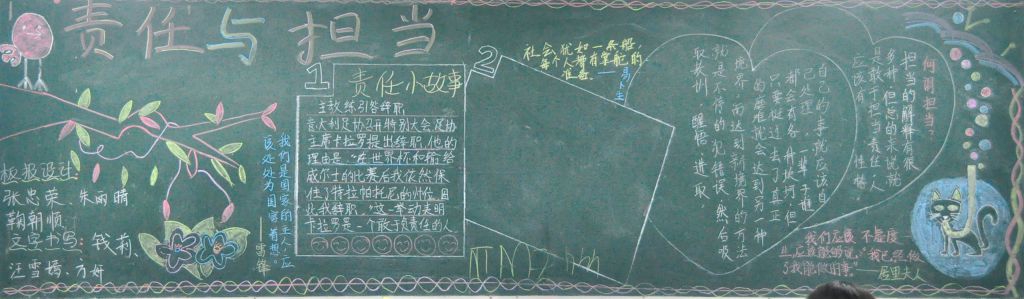 责任与担当
板报设计
张忠荣、朱丽晴
鞠朝顺
文字书写：钱莉、
汪雪婷、方妍
我们是国家的主人，应
该处处为国家着想。
——雷锋
1
责任小故事
主教练引咎辞职
意大利足协召开特别大会足协
主席卡拉罗提出辞职，他的
理由是：“在世界杯和输给
威尔士的比赛后我依然保
住了特拉帕托尼的帅位，因
此我辞职。”这一举动表明
卡拉罗是一个敢于负责任的人
2
社会犹如一条船，
每个人都有掌舵的
准备。
——易卜生
何谓担当？
担当的解释有很
多种，但总的来说就
是敢于担当责任，人
应该有
自己的事就应该自
己处理，一辈子谁
都会有各种坎坷，但
只要挺过去了，真正
的磨难就会达到另一种
境界，而达到新境界的方法
就是不停的犯错误，然后吸
取教训，醒悟，进取
我们应该不虚度
一生，应该能够说：“我已经做
了我能做的事”
居里夫人